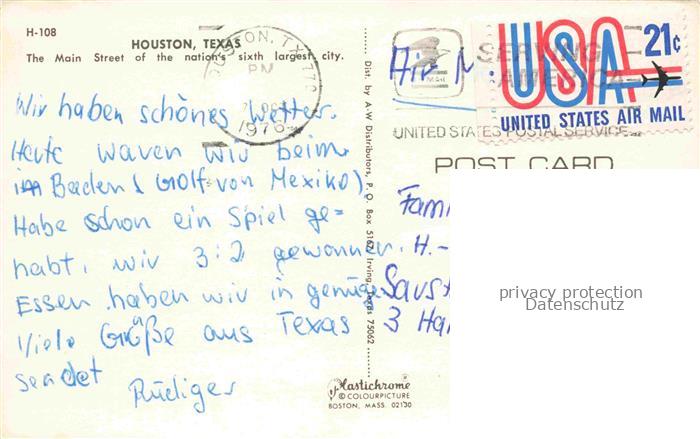 H-108
HOUSTON, TEXAS
The Main Street of the nation's sixth largest city.
HOUSTON, TX 772
PM
1976
Wir haben schönes Wetter.
Heute waren wir beim
im Baden (Golf von Mexiko).
Habe schon ein Spiel ge=
habt, wir 3:2 gewonnen.
Essen haben wir in genüge
Viele Größe aus Texas
sendet
Rüdiger
Dist. by A-W Distributors, P. O. Box 5162, Irving, Texas 75062
Plastichrome
® COLOURPICTURE
BOSTON, MASS. 02130
Air M
U.S. MAIL
SERVING
AMERICA
UNITED STATES POSTAL SERVICE
USA 21¢
UNITED STATES AIR MAIL
POST CARD
Fam
H.-
Saus
3 Ha
privacy protection
Datenschutz